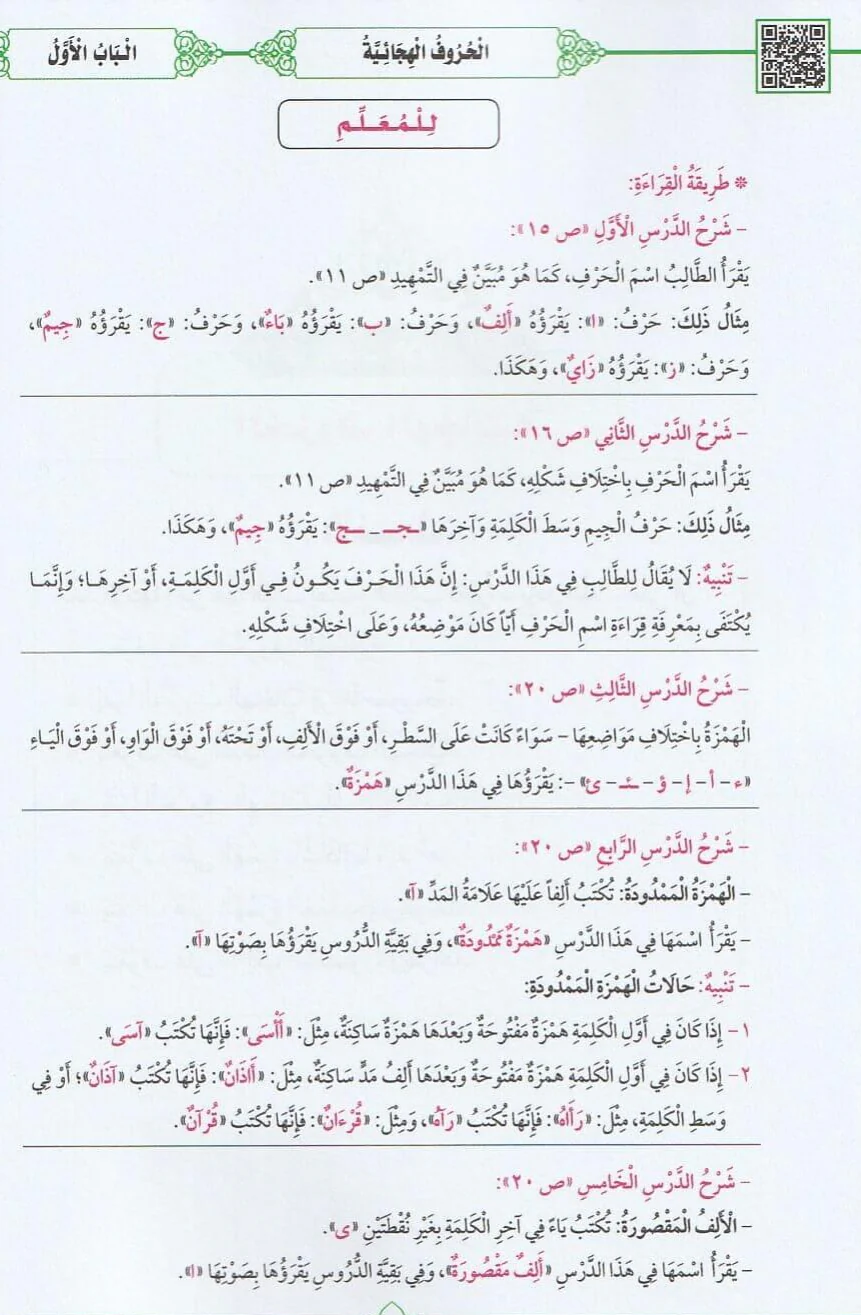 الْبَابُ الْأَوَّلُ
الْحُرُوفُ الْهِجَائِيَّةُ
لِلْمُعَلِّمِ
* طَرِيقَةُ الْقِرَاءَةِ:
- شَرْحُ الدَّرْسِ الْأَوَّلِ «ص ١٥»:
يَقْرَأُ الطَّالِبُ اسْمَ الْحَرْفِ، كَمَا هُوَ مُبَيَّنٌ فِي التَّمْهِيدِ «ص ١١».
مِثَالُ ذَلِكَ: حَرْفُ: «ا»: يَقْرَؤُهُ «أَلِفٌ»، وَحَرْفُ: «ب»: يَقْرَؤُهُ «بَاءٌ»، وَحَرْفُ: «ج»: يَقْرَؤُهُ «جِيمٌ»،
وَحَرْفُ: «ز»: يَقْرَؤُهُ «زَايٌ»، وَهَكَذَا.
- شَرْحُ الدَّرْسِ الثَّانِي «ص ١٦»:
يَقْرَأُ اسْمَ الْحَرْفِ بِاخْتِلَافِ شَكْلِهِ، كَمَا هُوَ مُبَيَّنٌ فِي التَّمْهِيدِ «ص ١١».
مِثَالُ ذَلِكَ: حَرْفُ الْجِيمِ وَسَطَ الْكَلِمَةِ وَآخِرَهَا «ـجـ - ـج»: يَقْرَؤُهُ «جِيمٌ»، وَهَكَذَا.
- تَنْبِيهٌ: لَا يُقَالُ للطَّالِبِ فِي هَذَا الدَّرْسِ: إِنَّ هَذَا الْحَرْفَ يَكُونُ فِي أَوَّلِ الْكَلِمَةِ، أَوْ آخِرِهَا؛ وَإِنَّمَا
يُكْتَفَى بِمَعْرِفَةِ قِرَاءَةِ اسْمِ الْحَرْفِ أَيّاً كَانَ مَوْضِعُهُ، وَعَلَى اخْتِلَافِ شَكْلِهِ.
- شَرْحُ الدَّرْسِ الثَّالِثِ «ص ٢٠»:
الْهَمْزَةُ بِاخْتِلَافِ مَوَاضِعِهَا - سَوَاءً كَانَتْ عَلَى السَّطْرِ، أَوْ فَوْقَ الْأَلِفِ، أَوْ تَحْتَهُ، أَوْ فَوْقَ الْوَاوِ، أَوْ فَوْقَ الْيَاءِ
«ء - أ - إ - ؤ - ـئـ - ئ» -: يَقْرَؤُهَا فِي هَذَا الدَّرْسِ «هَمْزَةٌ».
- شَرْحُ الدَّرْسِ الرَّابِعِ «ص ٢٠»:
- الْهَمْزَةُ الْمَمْدُودَةُ: تُكْتَبُ أَلِفاً عَلَيْهَا عَلَامَةُ المَدِّ «آ».
- يَقْرَأُ اسْمَهَا فِي هَذَا الدَّرْسِ «هَمْزَةٌ مَمْدُودَةٌ»، وَفِي بَقِيَّةِ الدُّرُوسِ يَقْرَؤُهَا بِصَوْتِهَا «آ».
- تَنْبِيهٌ: حَالَاتُ الْهَمْزَةِ الْمَمْدُودَةِ:
١- إِذَا كَانَ فِي أَوَّلِ الْكَلِمَةِ هَمْزَةٌ مَفْتُوحَةٌ وَبَعْدَهَا هَمْزَةٌ سَاكِنَةٌ، مِثْلَ: «أَأْسَى»: فَإِنَّهَا تُكْتَبُ «آسَى».
٢- إِذَا كَانَ فِي أَوَّلِ الْكَلِمَةِ هَمْزَةٌ مَفْتُوحَةٌ وَبَعْدَهَا أَلِفُ مَدٍّ سَاكِنَةٌ، مِثْلَ: «أَاذَانٌ»: فَإِنَّهَا تُكْتَبُ «آذَانٌ»؛ أَوْ فِي
وَسَطِ الْكَلِمَةِ، مِثْلَ: «رَأَاهُ»: فَإِنَّهَا تُكْتَبُ «رَآهُ»، وَمِثْلَ: «قُرْءَانٌ»: فَإِنَّهَا تُكْتَبُ «قُرْآنٌ».
- شَرْحُ الدَّرْسِ الْخَامِسِ «ص ٢٠»:
- الْأَلِفُ الْمَقْصُورَةُ: تُكْتَبُ يَاءً فِي آخِرِ الْكَلِمَةِ بِغَيْرِ نُقْطَتَيْنِ «ى».
- يَقْرَأُ اسْمَهَا فِي هَذَا الدَّرْسِ «أَلِفٌ مَقْصُورَةٌ»، وَفِي بَقِيَّةِ الدُّرُوسِ يَقْرَؤُهَا بِصَوْتِهَا «ا».